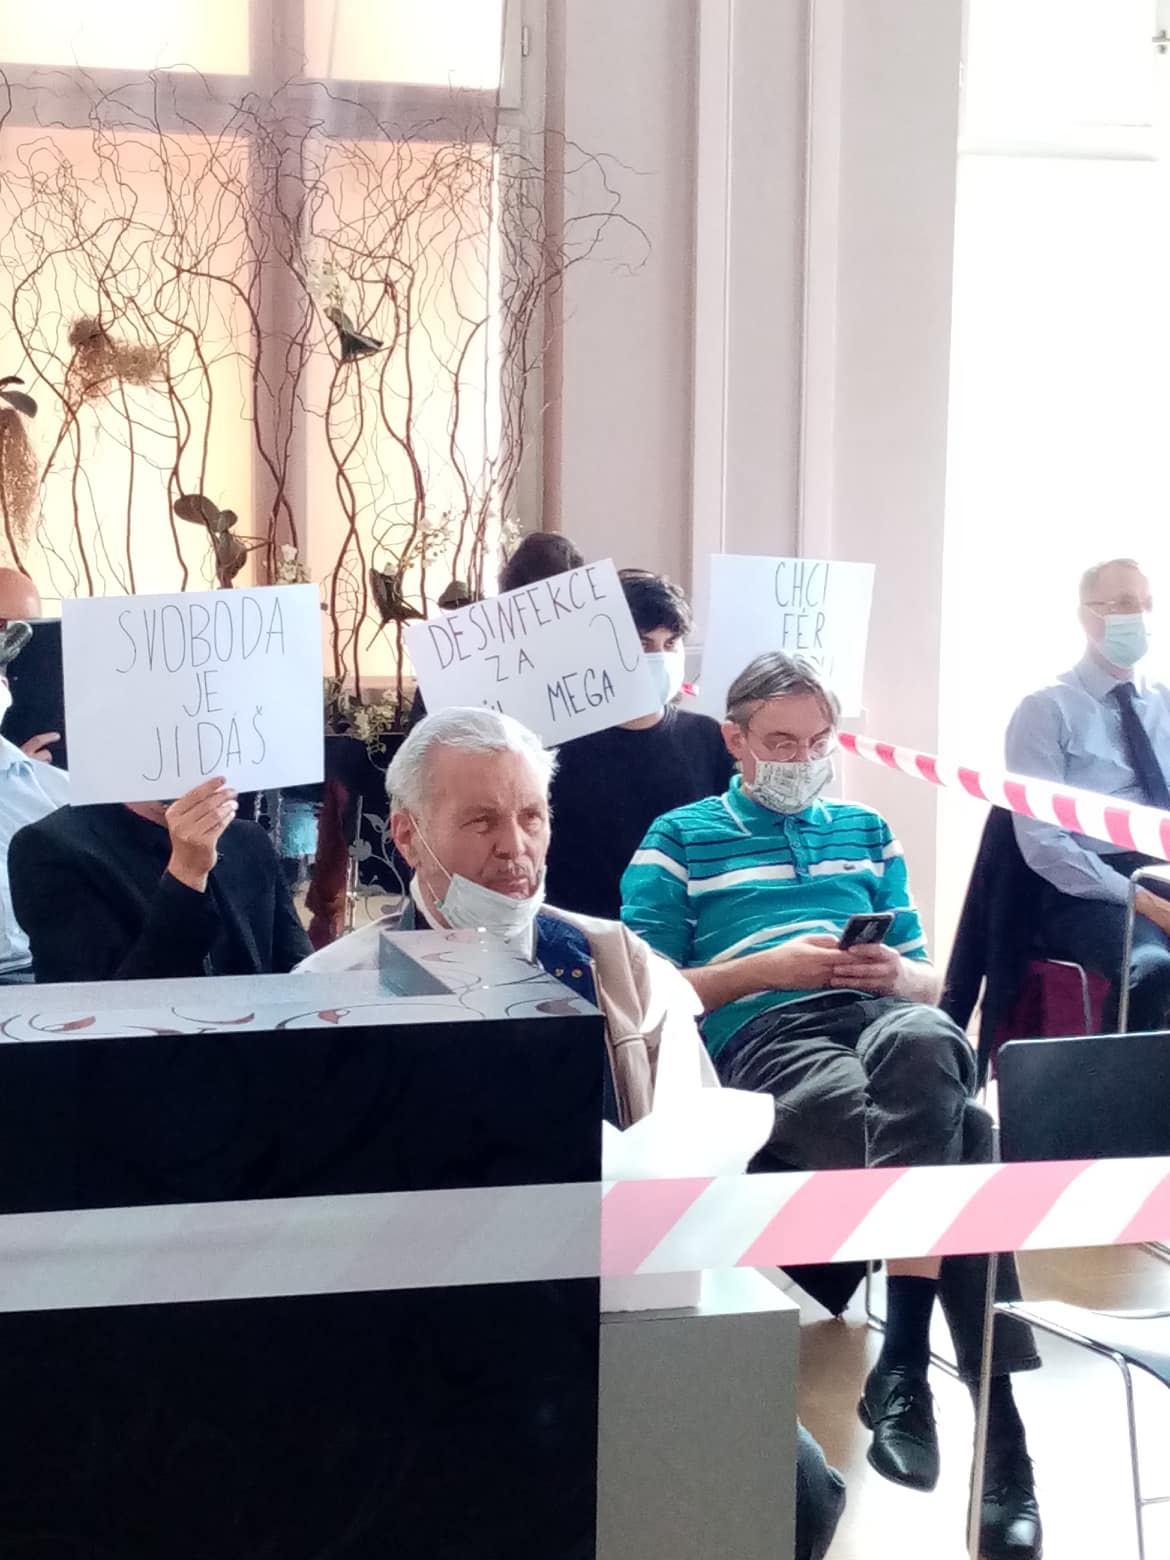 SVOBODA
JE
JIDÁŠ
DESINFEKCE
ZA
MEGA
?
CHCI
FÉR